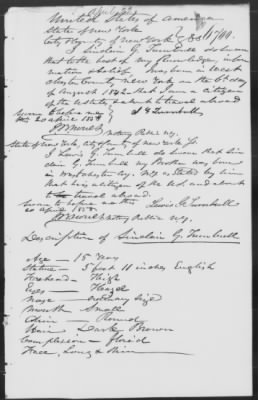 United States of America
State of New York
City & County of New York } SS 1700.
I Sinclair G. Turnbull do swear
that to the best of my knowledge, infor
mation & belief I was born in West
chester County, New York on the 6th day
of August 1842 that I am a citizen
of the U States, & about to travel abroad
Sworn before me
the 20 april 1858 S G Turnbull
Notary Public N.Y.
State of New York, city & County of New York ss.
I Lewis G. Turnbull do swear that Sin
clair G. Turnbull my Brother was born
in Westchester Coy. N.Y. as stated by him
that he is a citizen of the U.S. and about
to travel abroad.
Sworn to before me this Lewis G. Turnbull
20 april 1858
Notary Public N.Y.
Description of Sinclair G. Turnbull
Age — 15 Years
Stature — 5 foot 11 inches English
Forehead — High
Eyes — Hazel
Nose — ordinary sized
Mouth Small
Chin — Round
Hair Dark Brown
Complexion — florid
Face, Long & thin